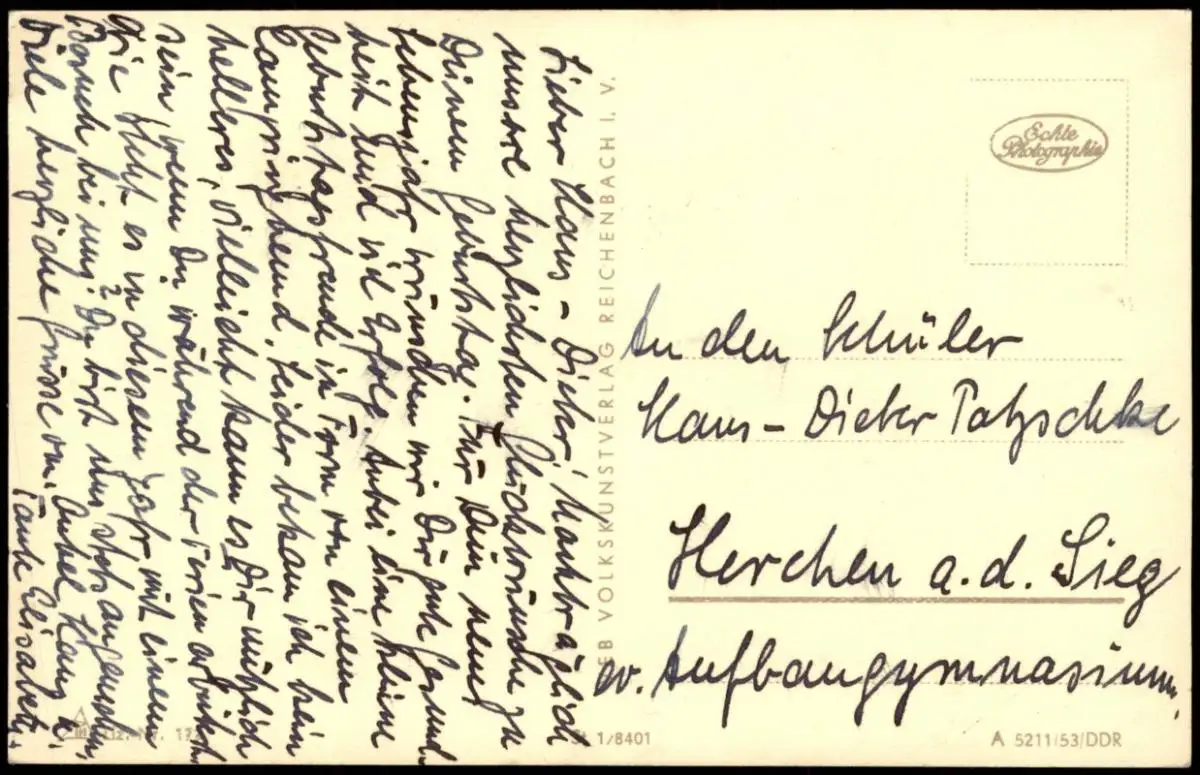 Lieber Hans-Dieter, Nachträglich
unsere herzlichsten Glückwünsche zu
Deinem Geburtstag. Für Dein neues
Lebensjahr wünschen wir Dir gute Gesund-
heit und viel Erfolg. Anbei eine kleine
Geburtstagsfreude in Form von einem
Campinghemd. Leider bekam ich kein
helleres, vielleicht kann es Dir nützlich
sein wenn Du während der Ferien arbeitest.
Wie steht es in diesem Jahr mit einem
Besuch bei uns? Du bist uns stets angenehm.
Viele herzliche Grüsse von Onkel Hans u.
Tante Elisabeth.
VEB VOLKSKUNSTVERLAG REICHENBACH I. V.
Echte
Photographie
An den Schüler
Hans-Dieter Patzschke
Herchen a.d. Sieg
ev. Aufbaugymnasium.
1/8401
A 5211/53/DDR